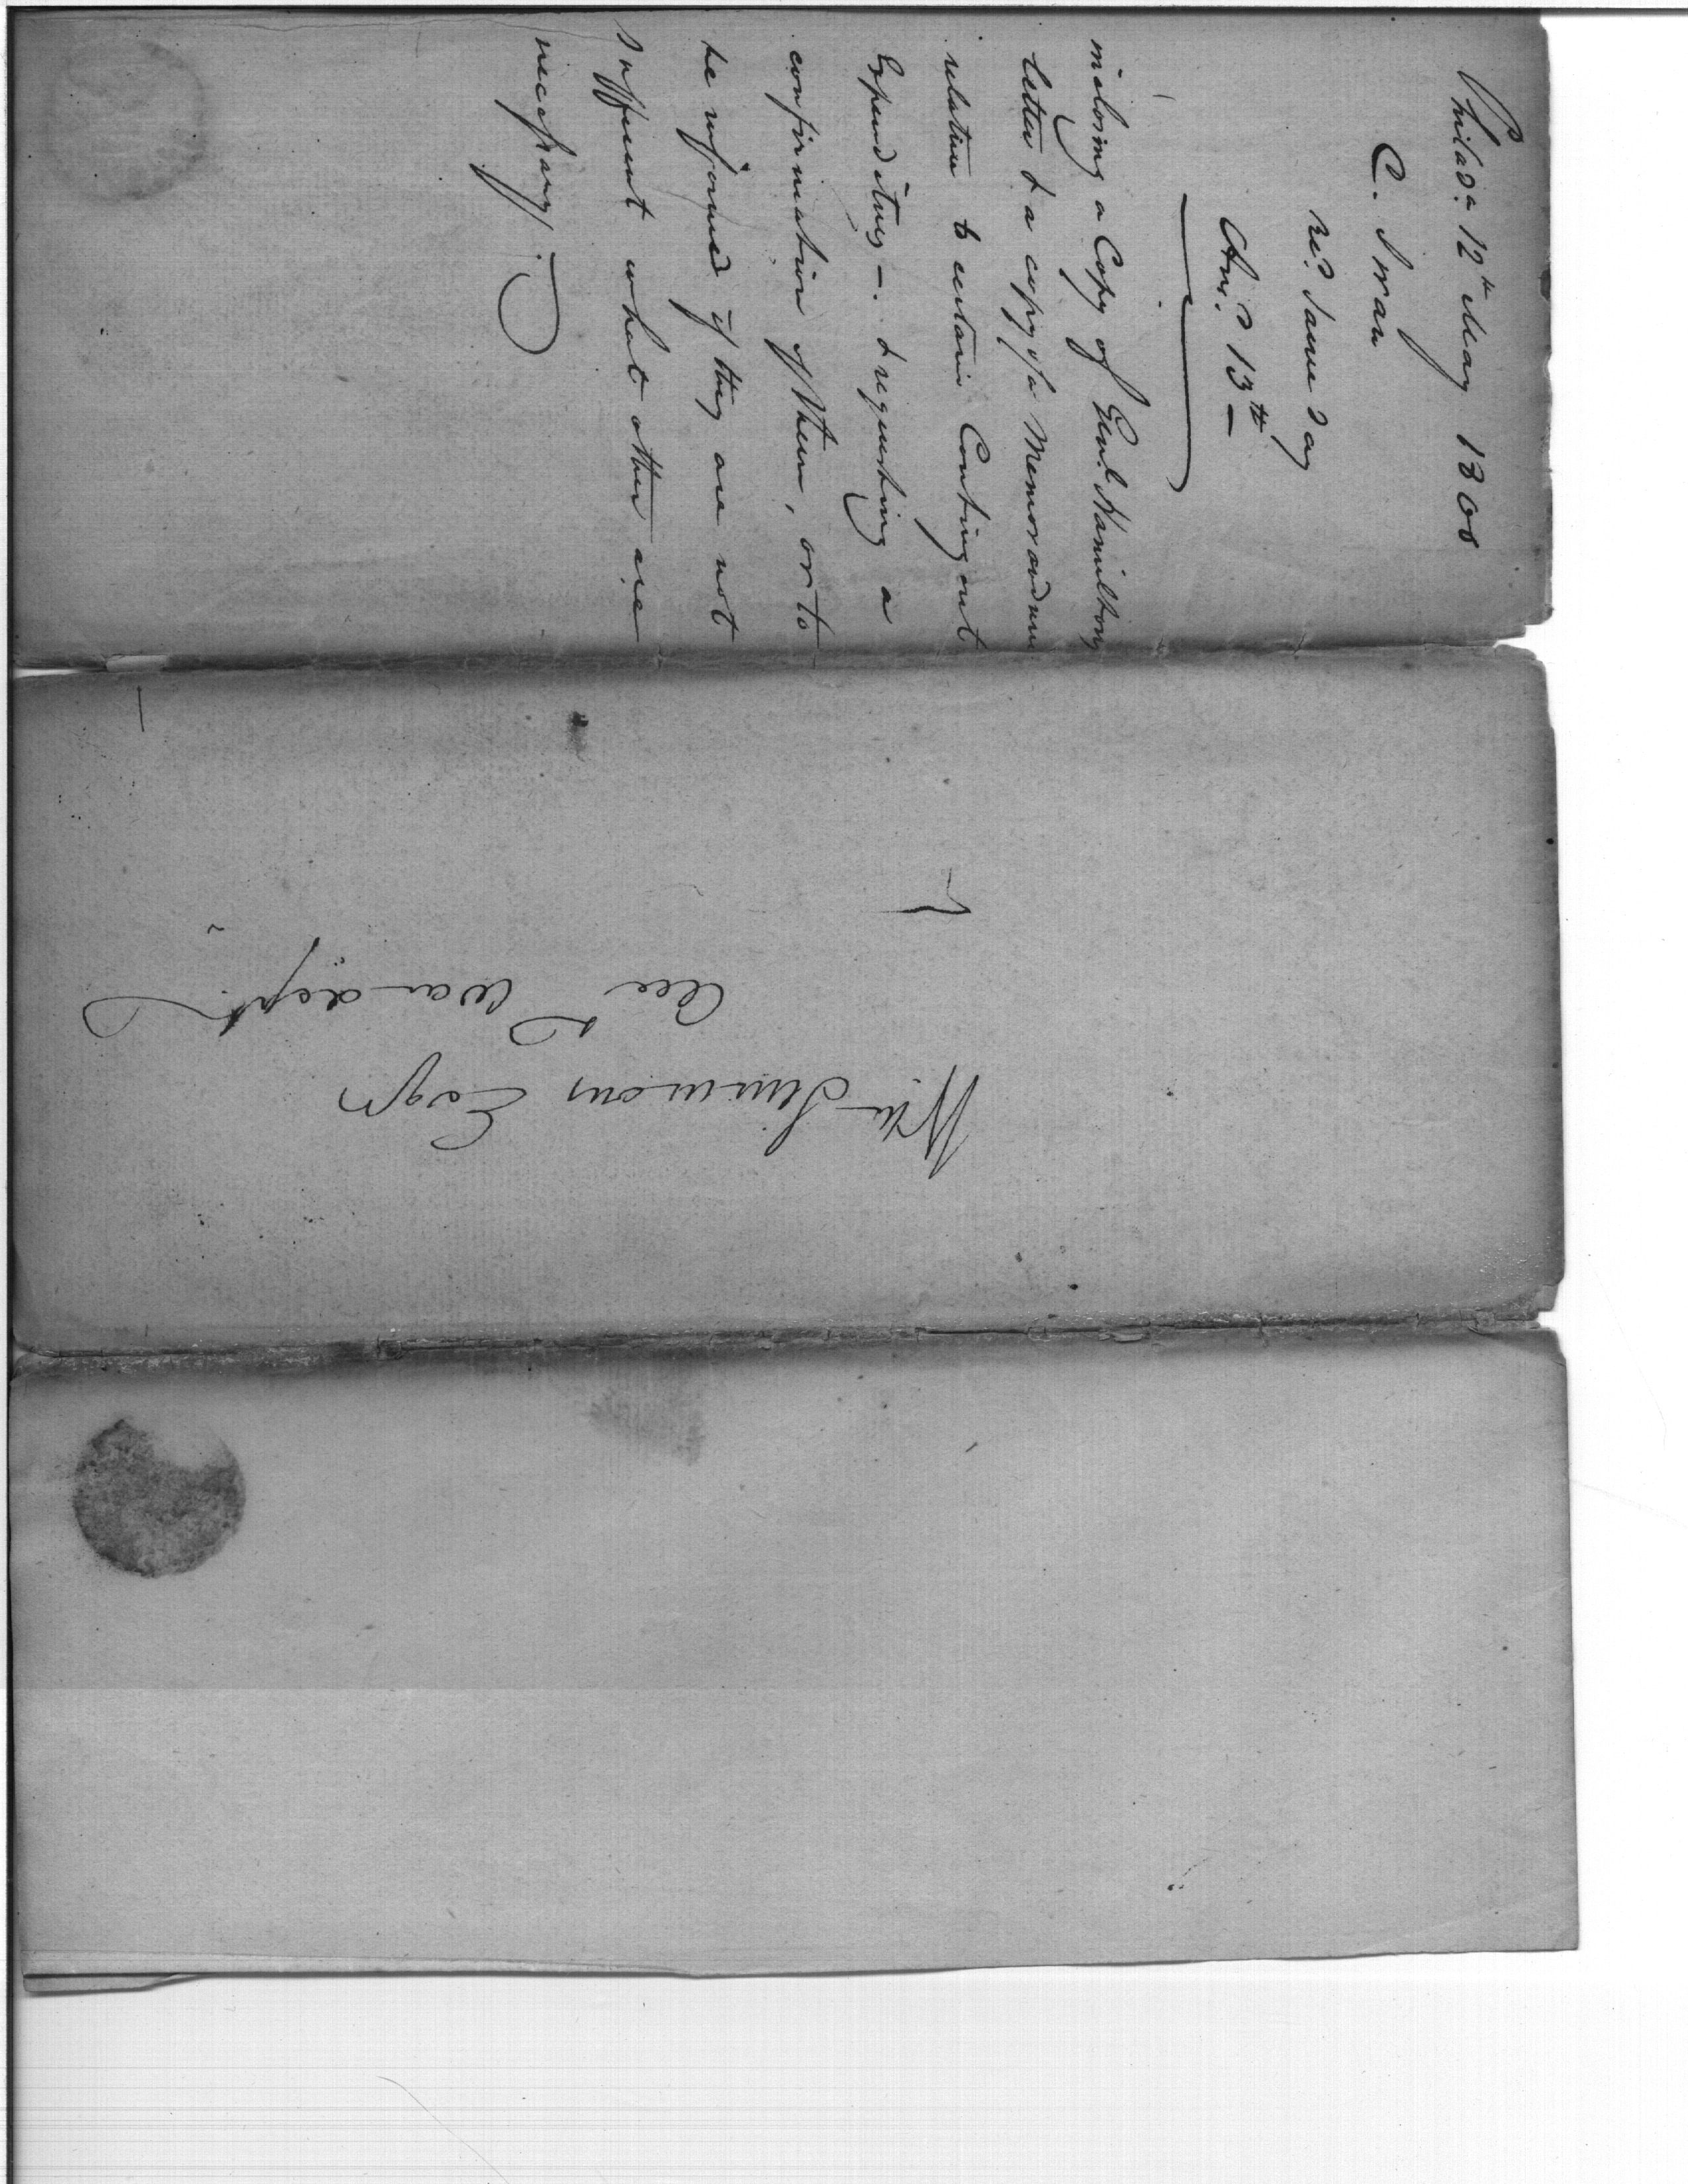 Philad.a 12th May 1800
C. Swan
rec.d same day
Ans.d 13th
inclosing a Copy of Genl. Hamiltons
letter & a copy of a Memorandum
relative to certain Contingent
Expenditures —. & requesting a
confirmation of them, or to
be informed if they are not
sufficient what other are
necessary.
Wm Simmons Esqr
Acct War dept